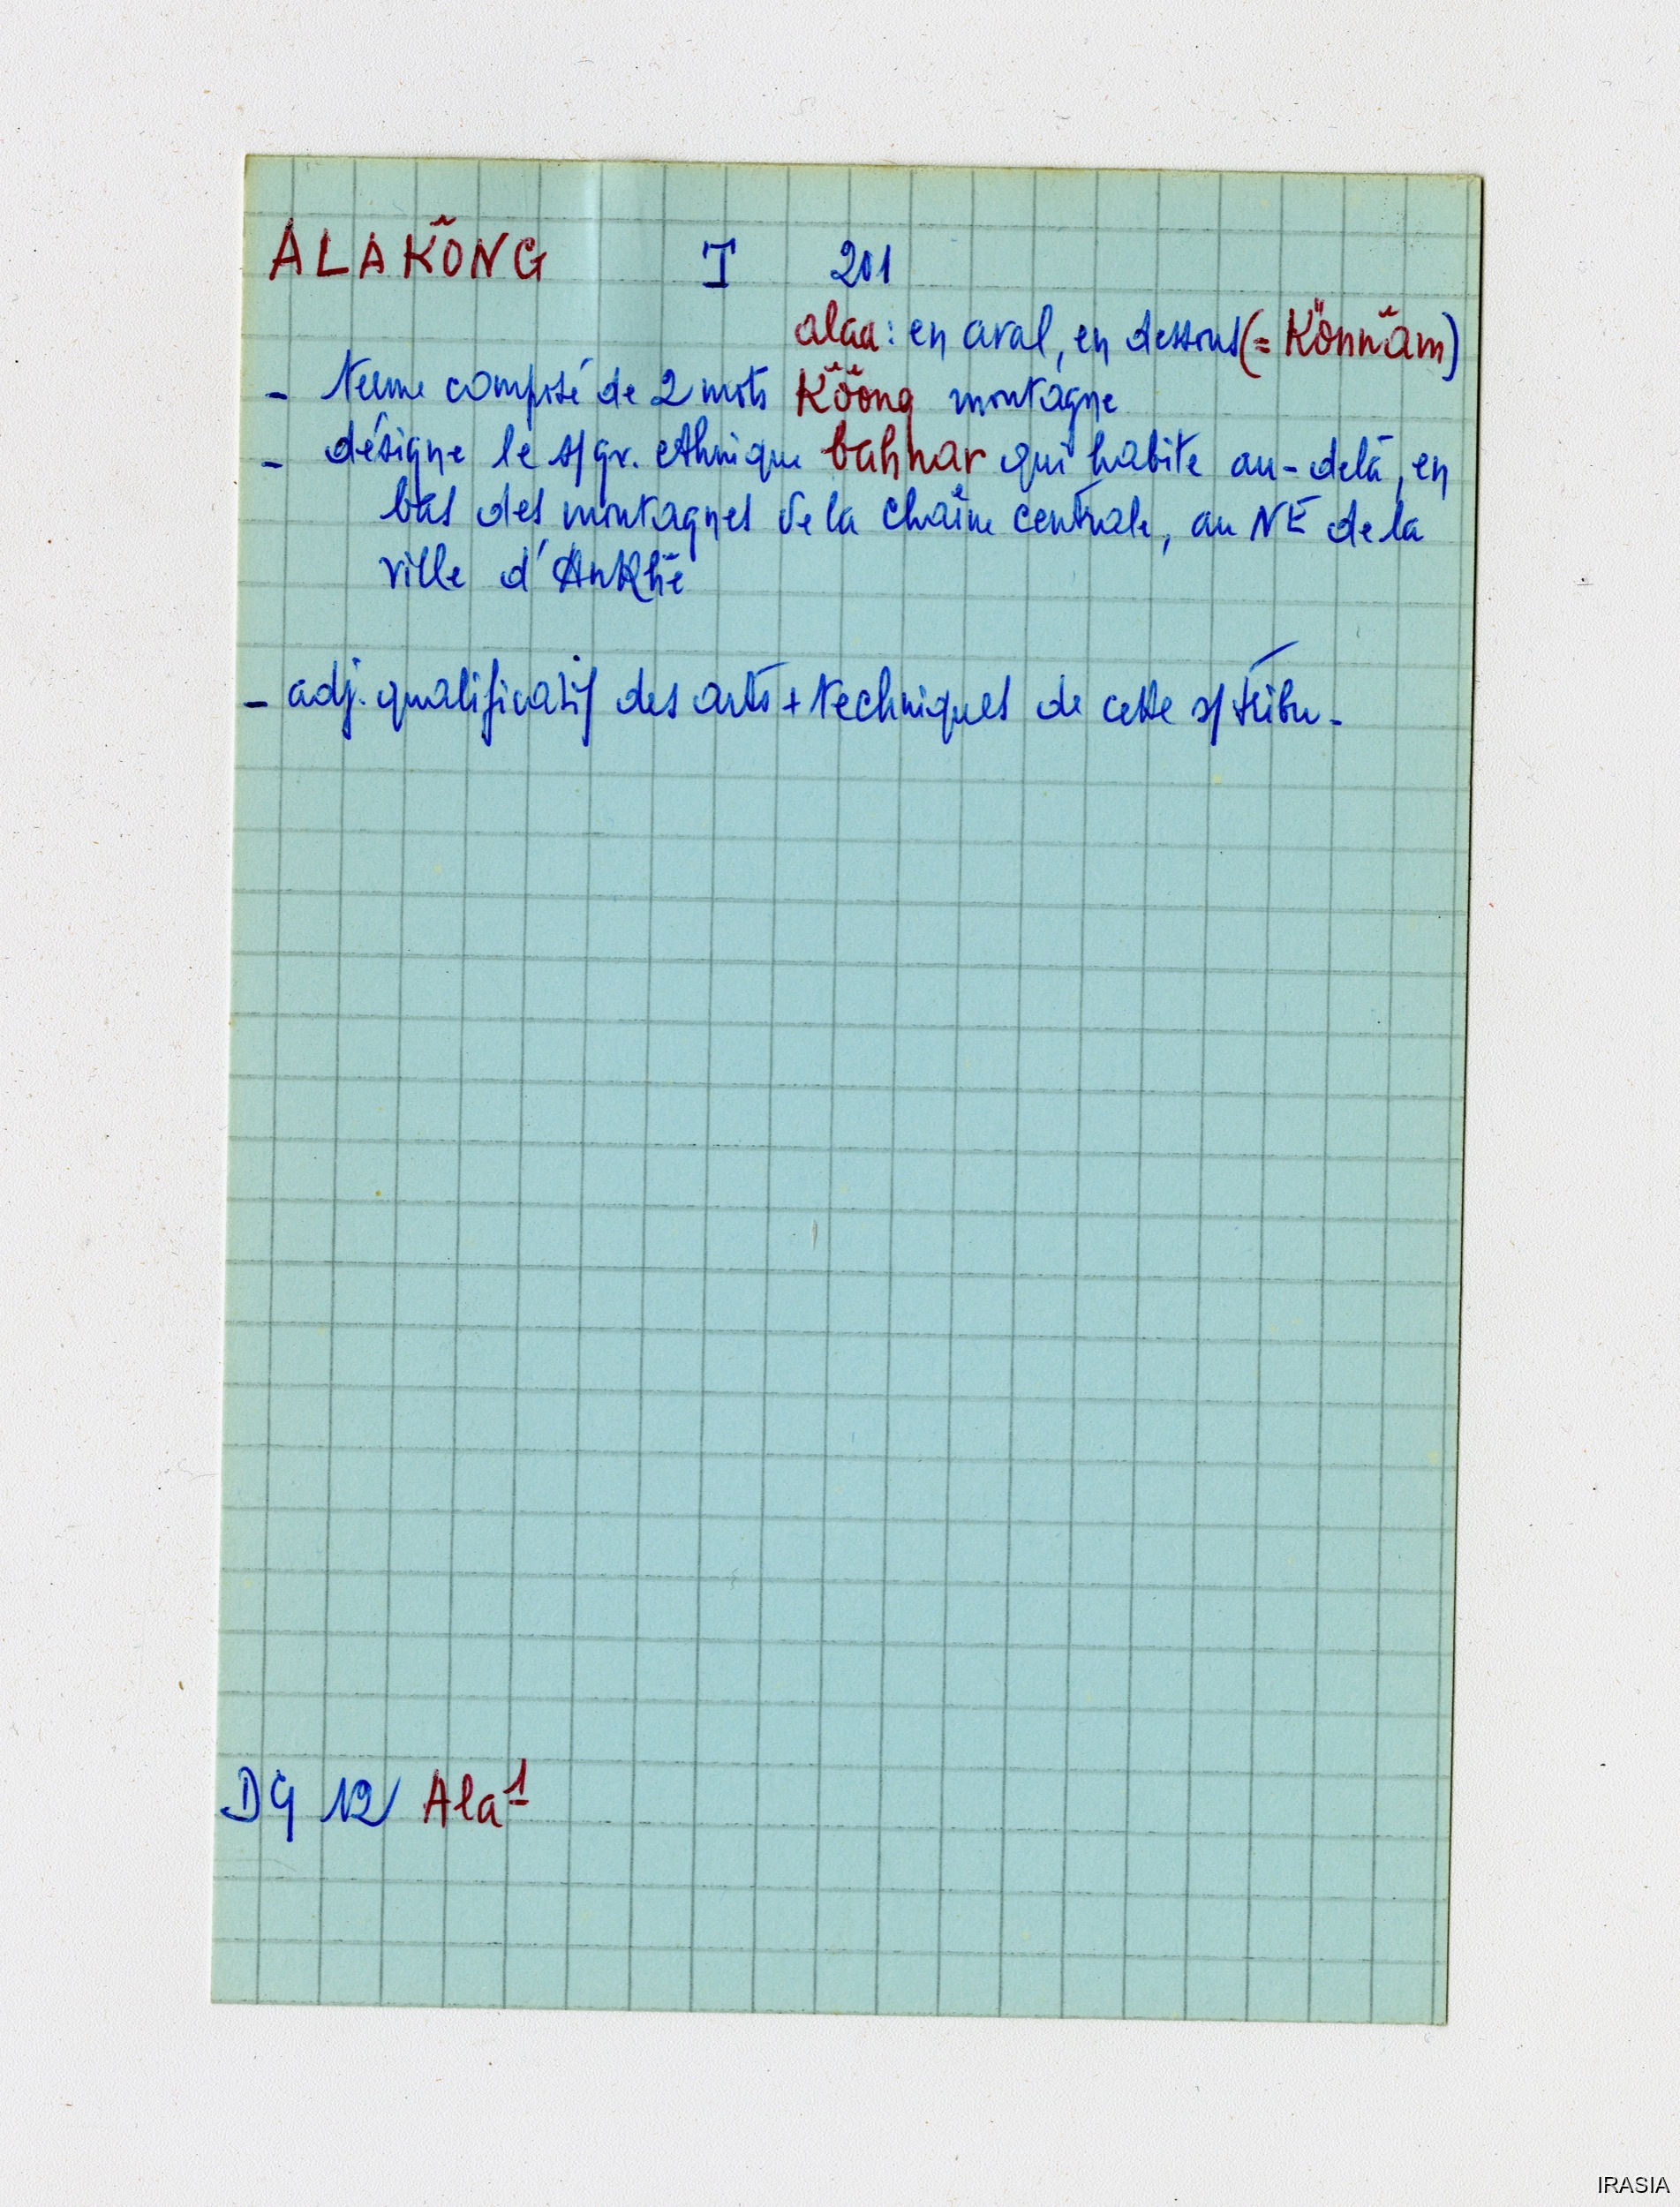 ALAKŎNG I 201
alaa : en aval, en dessous (= Könnăm)
- terme composé de 2 mots Kŏŏong montagne
- désigne le s/gr. ethnique bahnar qui habite au-delà, en
bas des montagnes de la chaîne centrale, au NE de la
ville d'AnKhê
- adj. qualificatif des arts + techniques de cette s/tribu -
DG 12 Ala 1
IRASIA